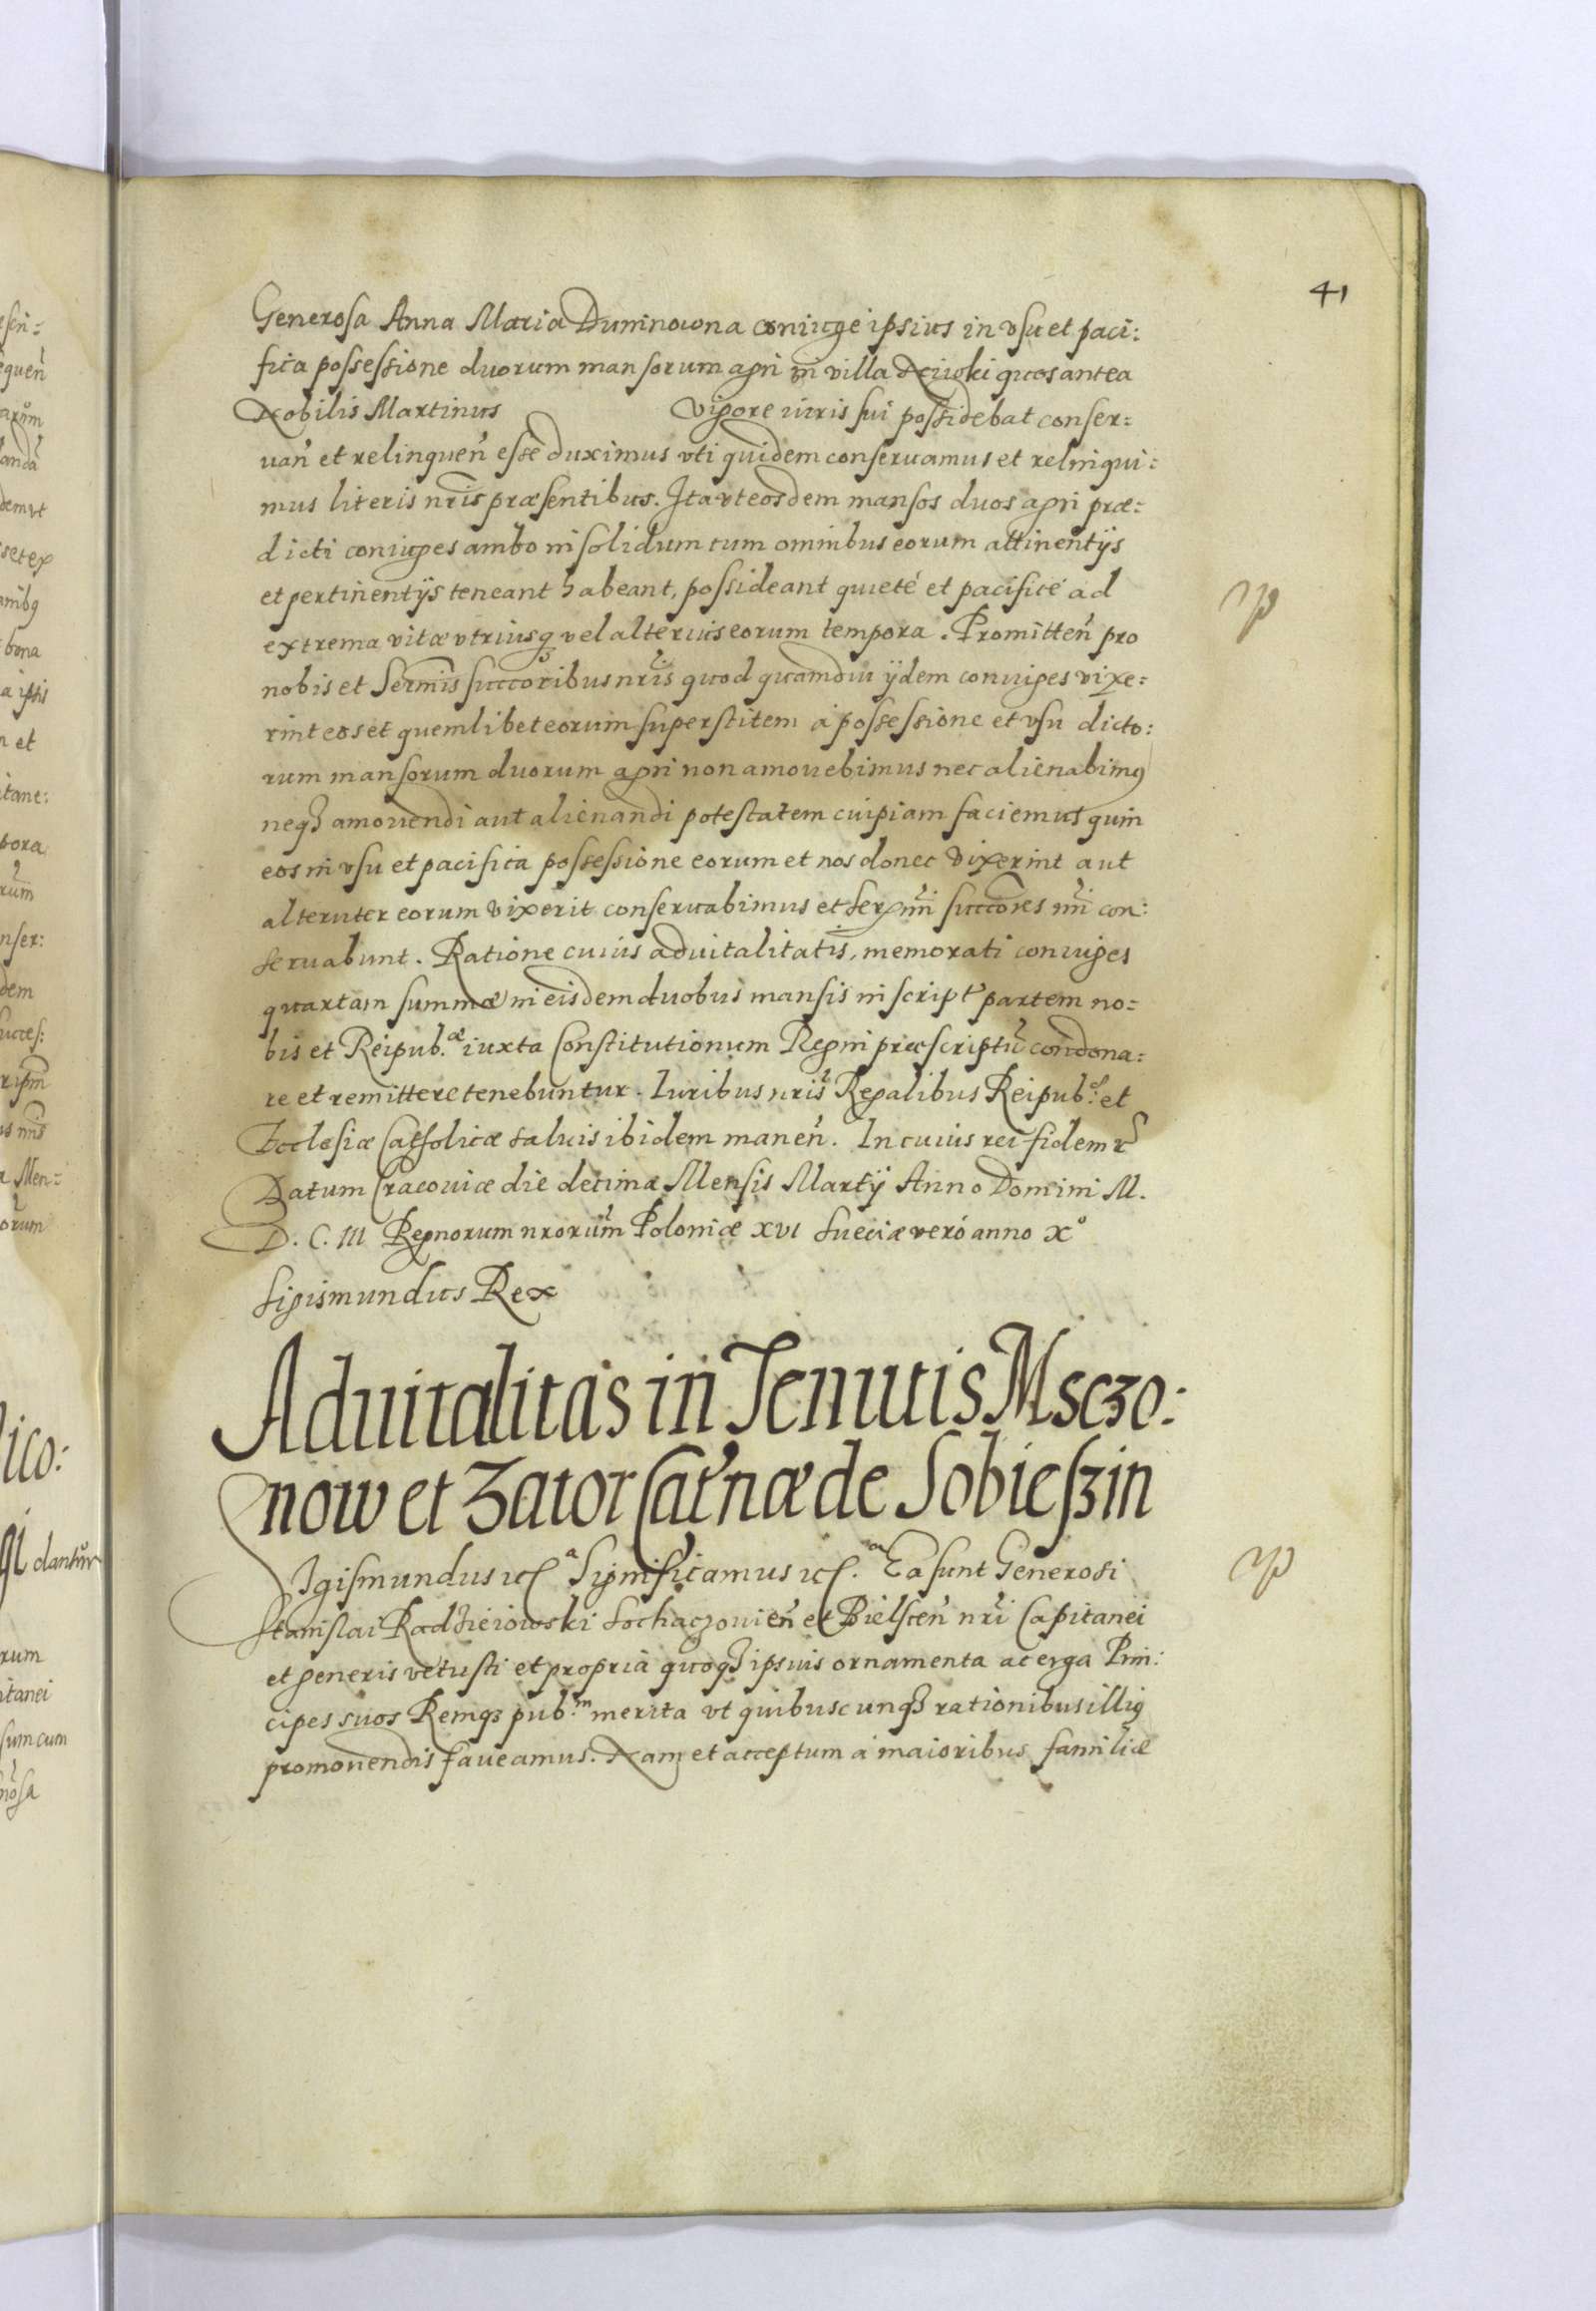 41
Generosa Anna Maria Duninowna coniuge ipsius in vsu et paci:
fica possessione duorum mansorum agri in villa quos antea
Nobilis Martinus Vigore iuris sui possidebat conser=
uan̄ et relinquen̄ esse duximus vti quidem conseruamus et relinqui=
mus literis nr̄is præsentibus. Ita vt eosdem mansos duos agri præ=
dicti coniuges ambo in solidum cum omnibus eorum attinentijs
et pertinentijs teneant habeant, possideant quietè et pacificè ad
extrema vitæ vtriusq3 vel alterius eorum tempora. Promitten̄ pro
nobis et Serm̄is succōribus nr̄is quod quamdiu ijdem coniuges vixe=
rint eos et quemlibet eorum superstitem à possessione et vsu dicto:
rum mansorum duorum agri non amouebimus nec alienabimꝰ
neq3 amouendi aut alienandi potestatem cuipiam faciemus quin
eos in vsu et pacifica possessione eorum et nos donec vixerint aut
alteruter eorum vixerit conseruabimus et Serm̄i succōres nr̄i con:
seruabunt. Ratione cuius aduitalitatis, memorati coniuges
quartam summæ in eisdem duobus mansis inscript̄ partem no=
bis et Reipub.æ iuxta Constitutionum Regni præscriptū condona=
re et remittere tenebuntur. Iuribus nr̄is Regalibus Reipub.æ et
Ecclesiæ Catholicæ saluis ibidem manen̄. In cuius rei fidem &c
Datum Cracouiæ die decima Mensis Martij Anno Domini M.
D. C. III Regnorum nrorum̄ Poloniæ XVI Sueciæ verò anno X°
Sigismundus Rex
Aduitalitas in Tenutis Msczo:
now et Zator Cat̄næ de Sobieszin
Sigismundus etc.a Significamus etc.a Ea sunt Generosi
Stanislai Radzieiowski Sochaczouien̄ et Bielscen̄ nr̄i Capitanei
et generis vetusti et propria quoq3 ipsius ornamenta ac erga Prin:
cipes suos Remq3 pub.m merita vt quibuscunq3 rationibus illiꝰ
promouendis faueamus. Nam et acceptum à maioribus familiæ